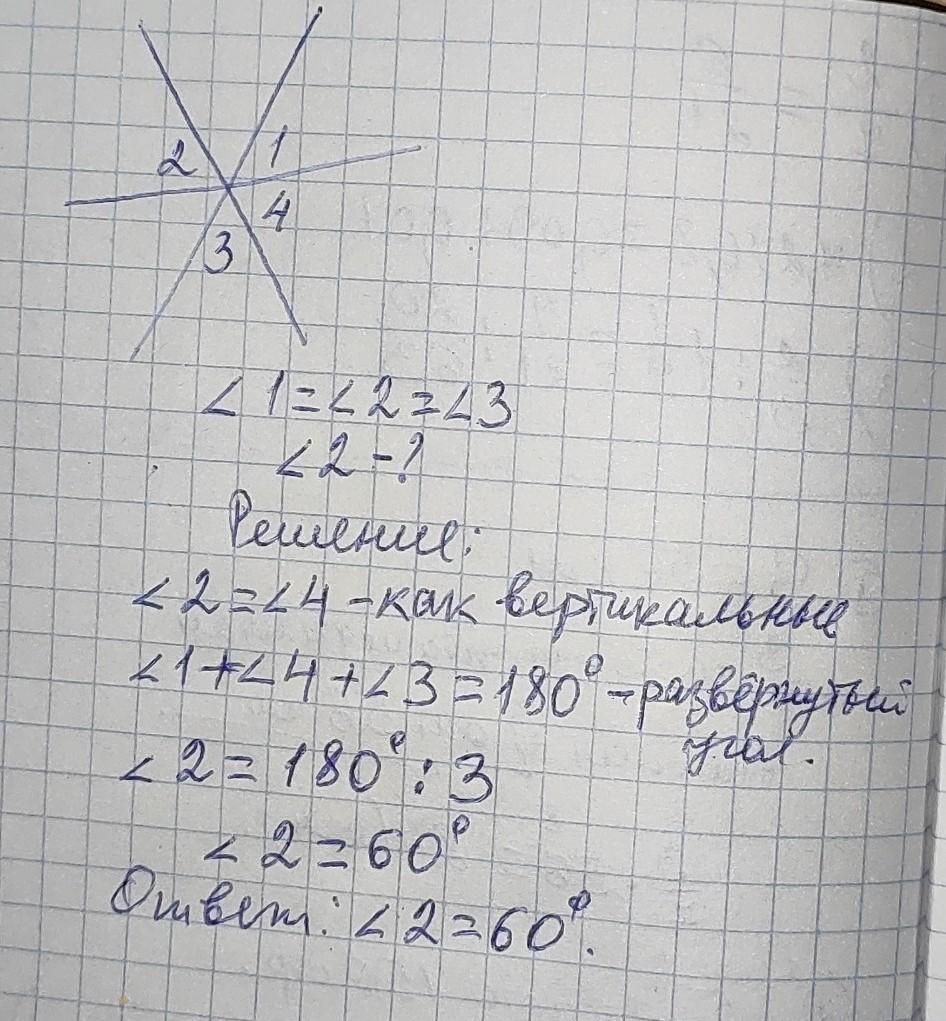 2 1
4
3
∠1=∠2=∠3
∠2-?
Решение:
∠2=∠4-как вертикальные
∠1+∠4+∠3=180°-развёрнутый
угол.
∠2=180°:3
∠2=60°
Ответ: ∠2=60°.